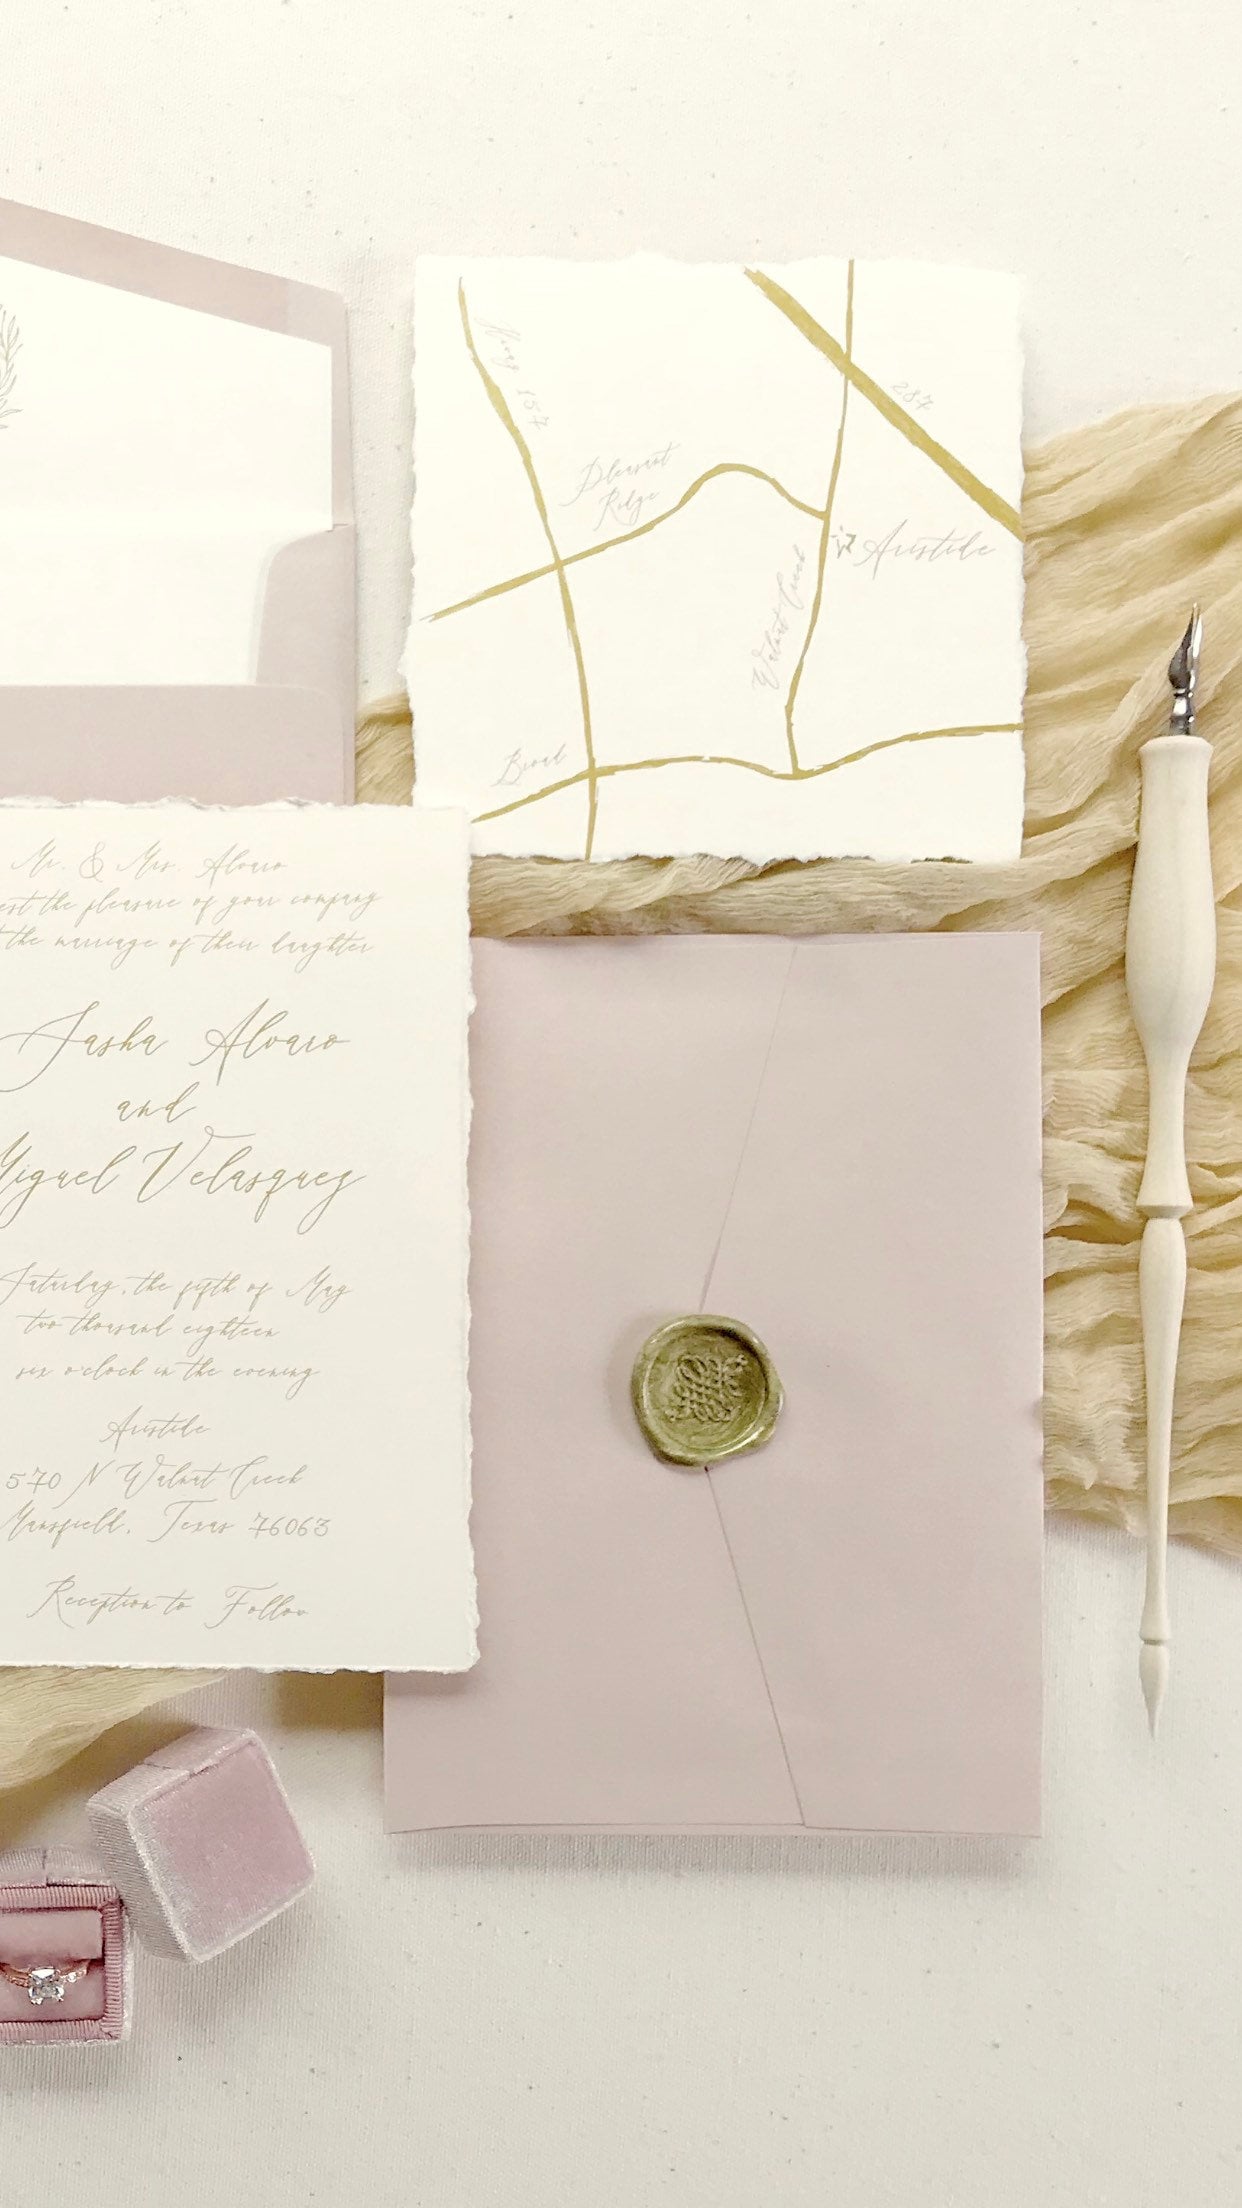 Hwy 157
287
Pleasant
Ridge
Aristide
Walnut Creek
Broad
Mr. & Mrs. Alvaro
est the pleasure of your company
the marriage of their daughter
Sasha Alvaro
and
Miguel Velasquez
Saturday, the fifth of May
two thousand eighteen
six o'clock in the evening
Aristide
570 N Walnut Creek
Mansfield, Texas 76063
Reception to Follow